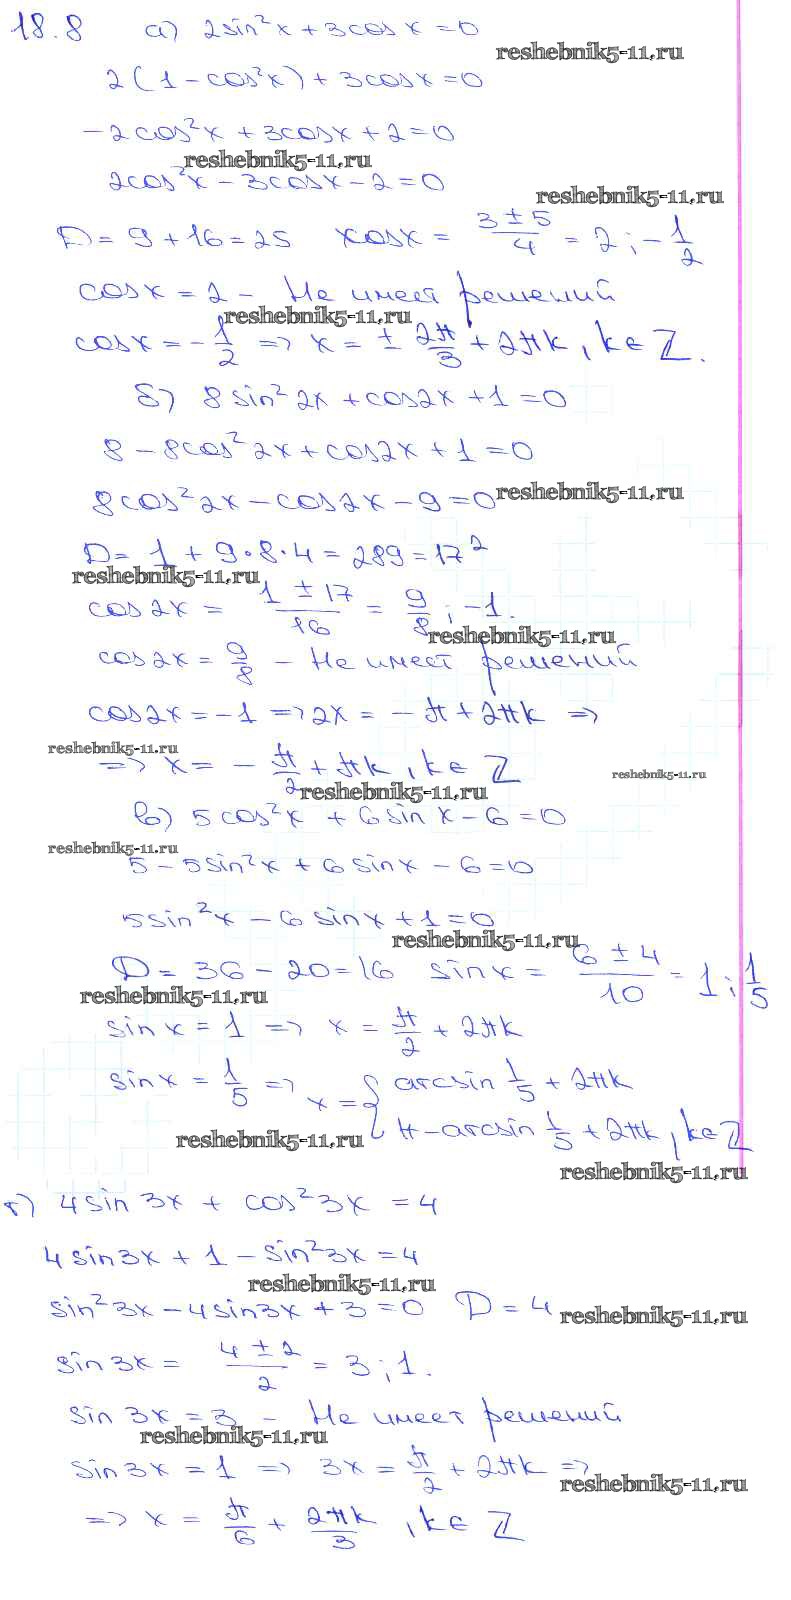 18.8 а) 2sin²x + 3cosx = 0
reshebnik5-11.ru
2(1 - cos²x) + 3cosx = 0
-2cos²x + 3cosx + 2 = 0
reshebnik5-11.ru
2cos²x - 3cosx - 2 = 0
reshebnik5-11.ru
D = 9 + 16 = 25 cosx = (3 ± 5)/4 = 2; -1/2
cosx = 2 - Не имеет решений
reshebnik5-11.ru
cosx = -1/2 => x = ± 2π/3 + 2πk, k ∈ Z.
б) 8sin²2x + cos2x + 1 = 0
8 - 8cos²2x + cos2x + 1 = 0
8cos²2x - cos2x - 9 = 0 reshebnik5-11.ru
D = 1 + 9·8·4 = 289 = 17²
reshebnik5-11.ru
cos2x = (1 ± 17)/16 = 9/8; -1.
reshebnik5-11.ru
cos2x = 9/8 - Не имеет решений
cos2x = -1 => 2x = -π + 2πk =>
reshebnik5-11.ru
=> x = -π/2 + πk, k ∈ Z
reshebnik5-11.ru
reshebnik5-11.ru
в) 5cos²x + 6sinx - 6 = 0
reshebnik5-11.ru
5 - 5sin²x + 6sinx - 6 = 0
5sin²x - 6sinx + 1 = 0
reshebnik5-11.ru
D = 36 - 20 = 16 sinx = (6 ± 4)/10 = 1; 1/5
reshebnik5-11.ru
sinx = 1 => x = π/2 + 2πk
sinx = 1/5 => x = { arcsin 1/5 + 2πk
π - arcsin 1/5 + 2πk, k ∈ Z
reshebnik5-11.ru
reshebnik5-11.ru
г) 4sin3x + cos²3x = 4
4sin3x + 1 - sin²3x = 4
reshebnik5-11.ru
sin²3x - 4sin3x + 3 = 0 D = 4
reshebnik5-11.ru
sin3x = (4 ± 2)/2 = 3; 1.
sin3x = 3 - Не имеет решений
reshebnik5-11.ru
sin3x = 1 => 3x = π/2 + 2πk =>
reshebnik5-11.ru
=> x = π/6 + 2πk/3, k ∈ Z